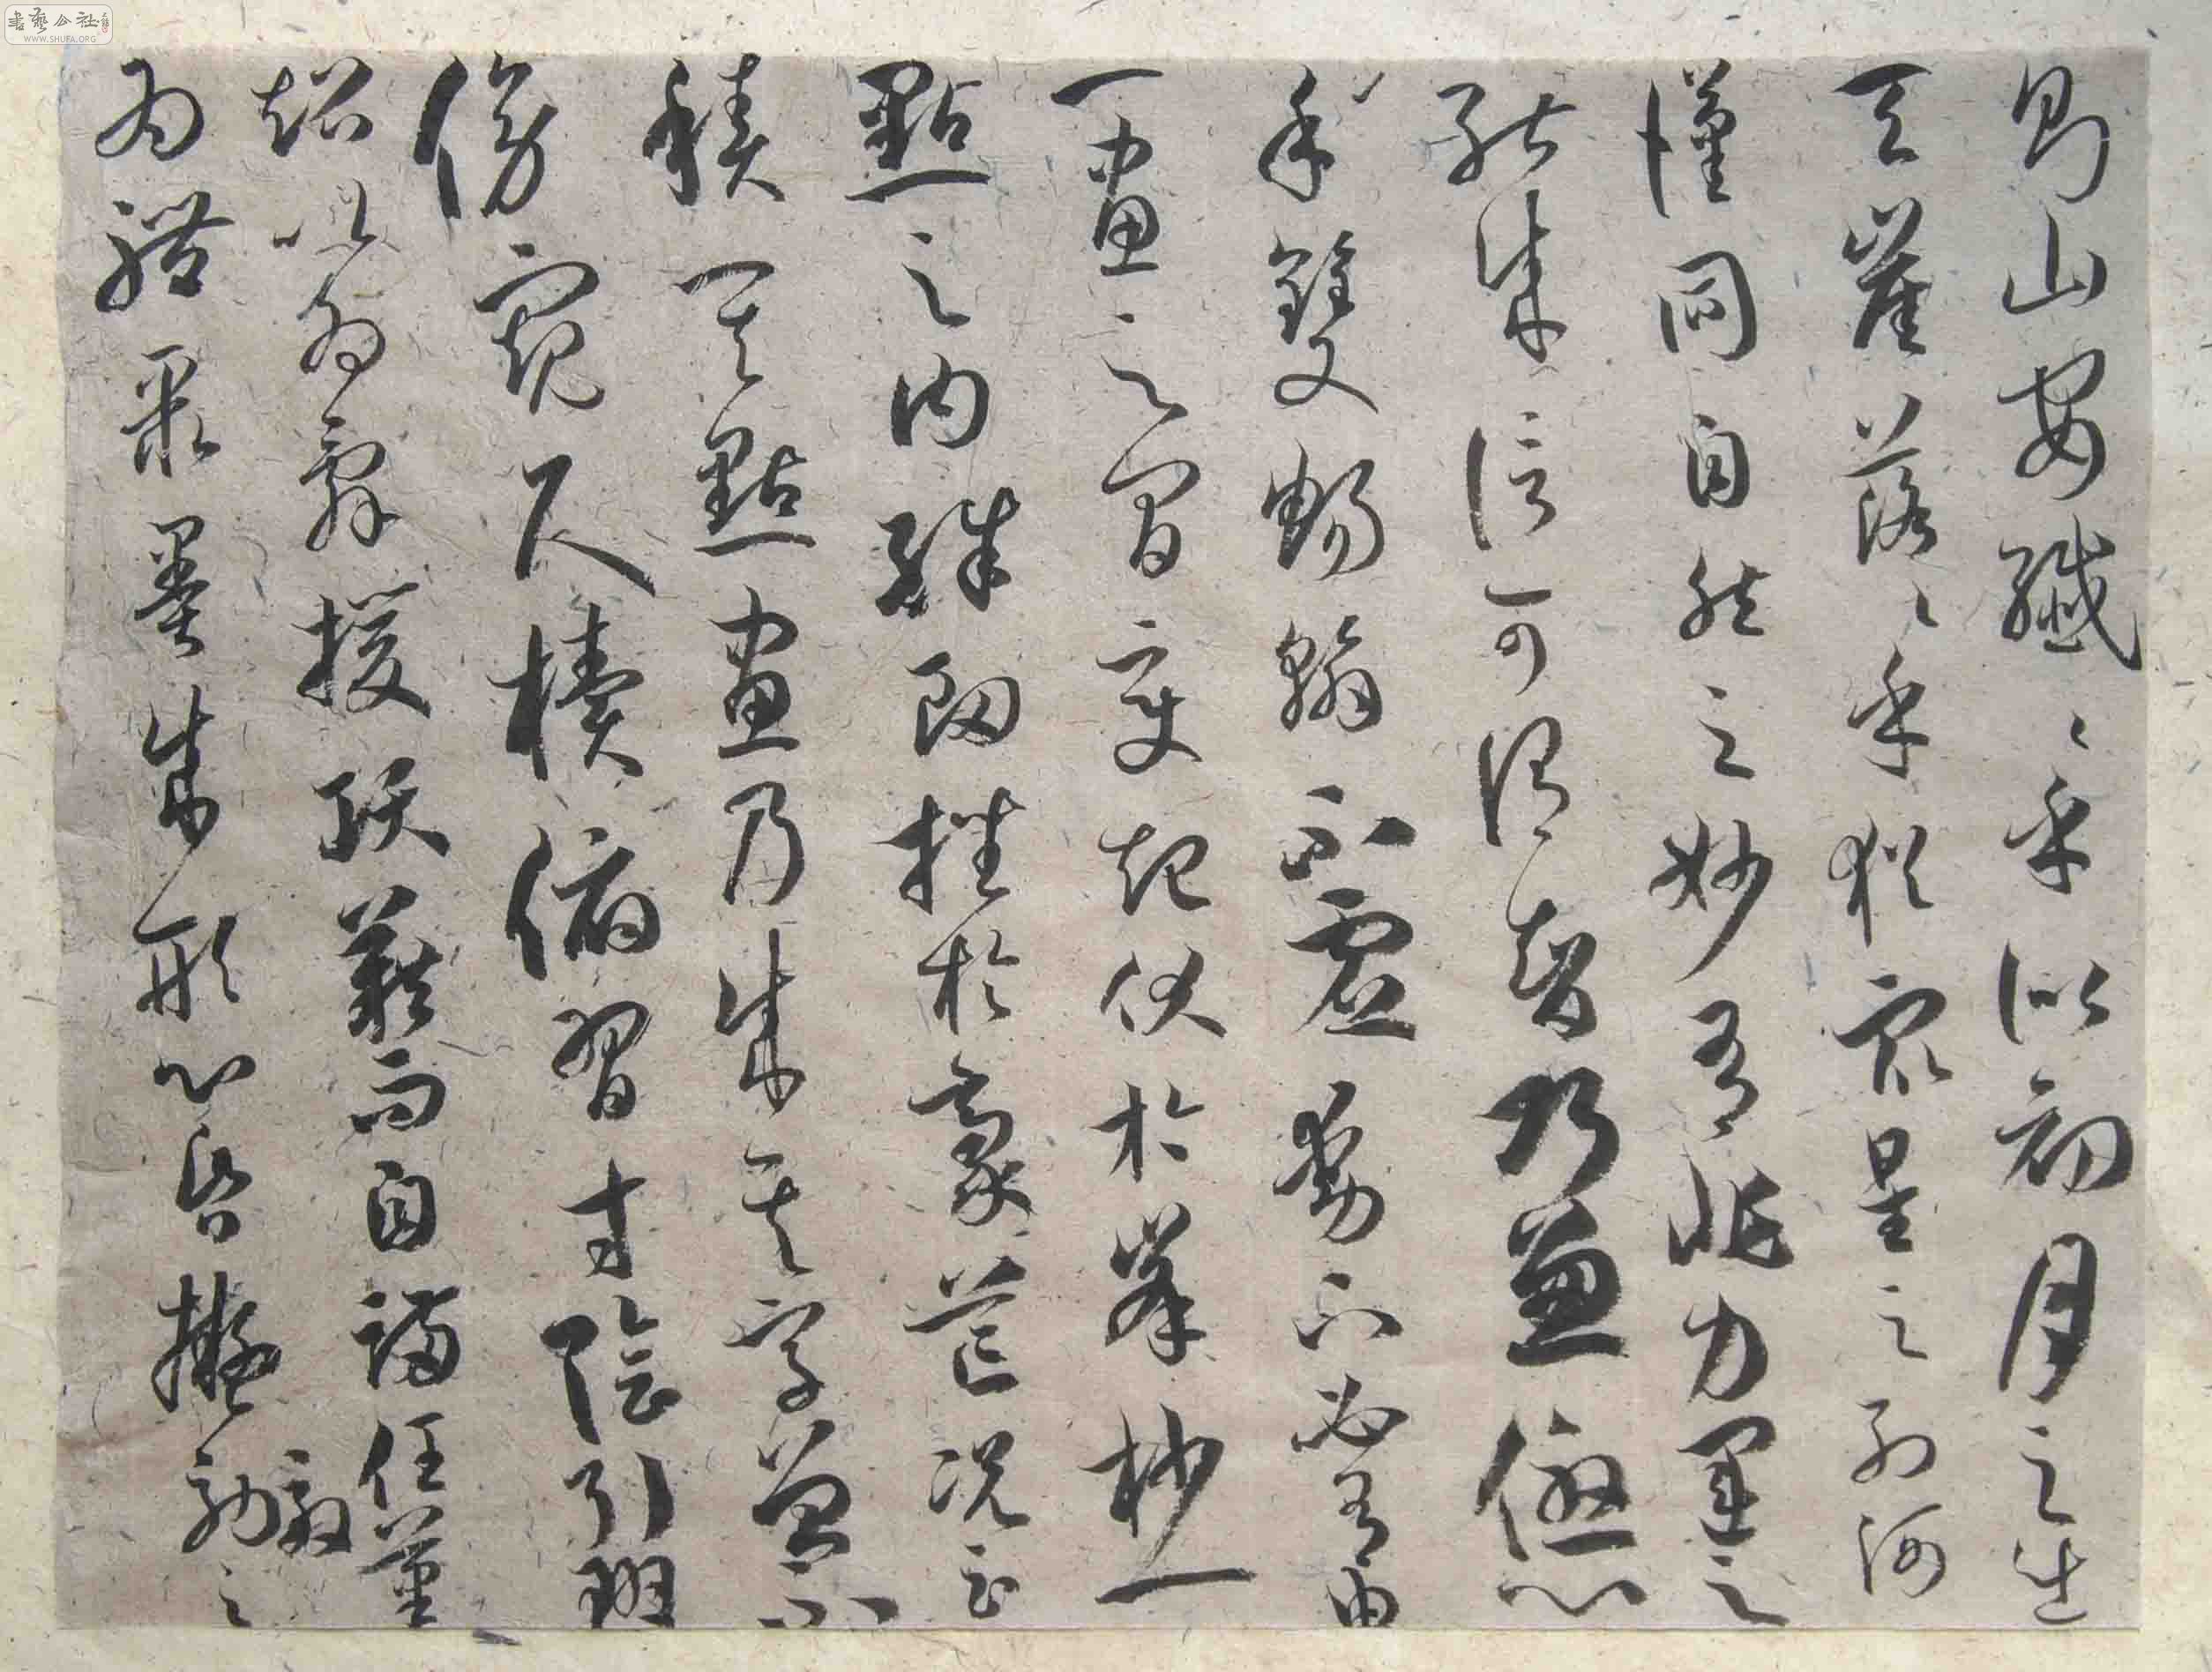 書藝公社
WWW.SHUFA.ORG
則山安纖〻乎似初月之出
天崖落〻乎猶眾星之列河
漢同自然之妙有非力運之
能成信可謂智巧兼優心
手雙暢翰不虛動下必有由
一畫之間變起伏於峯杪一
點之內殊衄挫於豪芒況云
積其點畫乃成其字曾不
傍窺尺牘俯習寸陰引班
超以為辭援項籍而自滿任筆
為體聚墨成形心昏擬効之